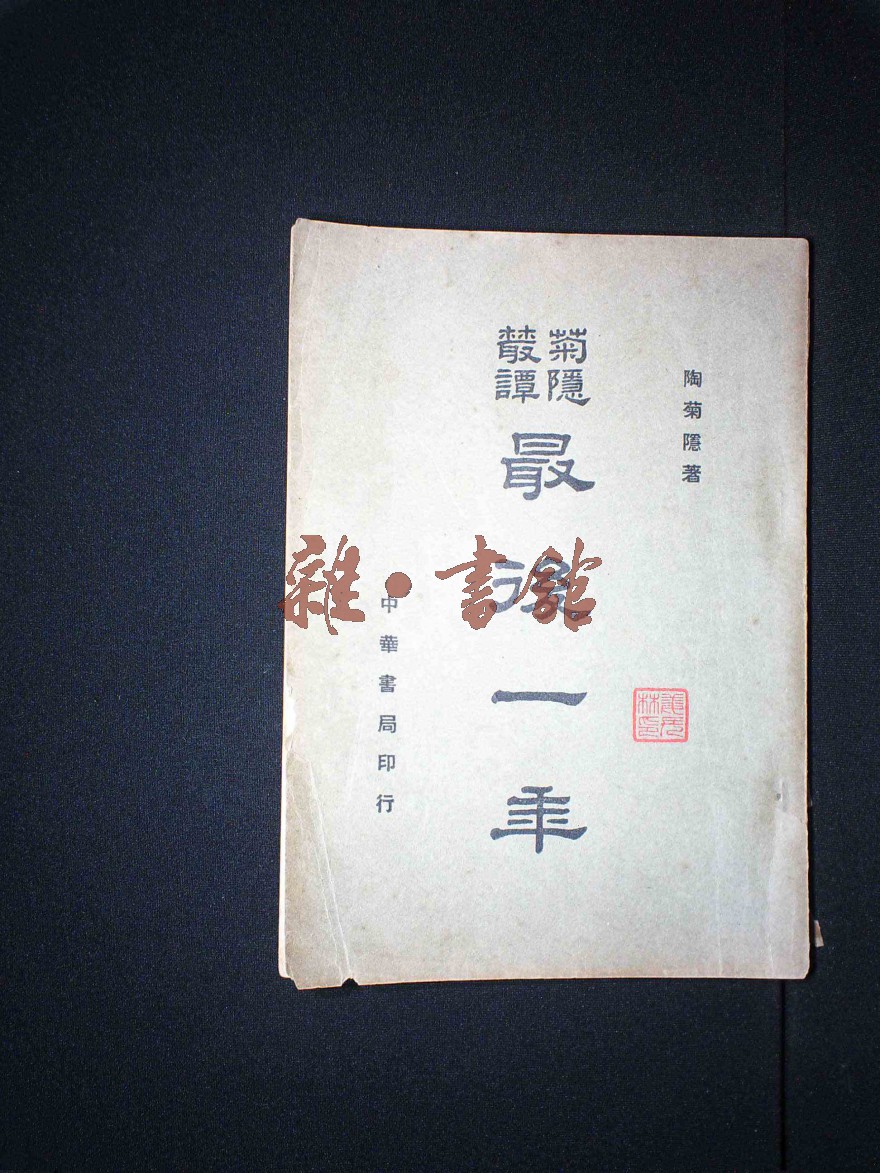 陶菊隱著
菊隱
叢譚
最後一年
中華書局印行
雜·書館